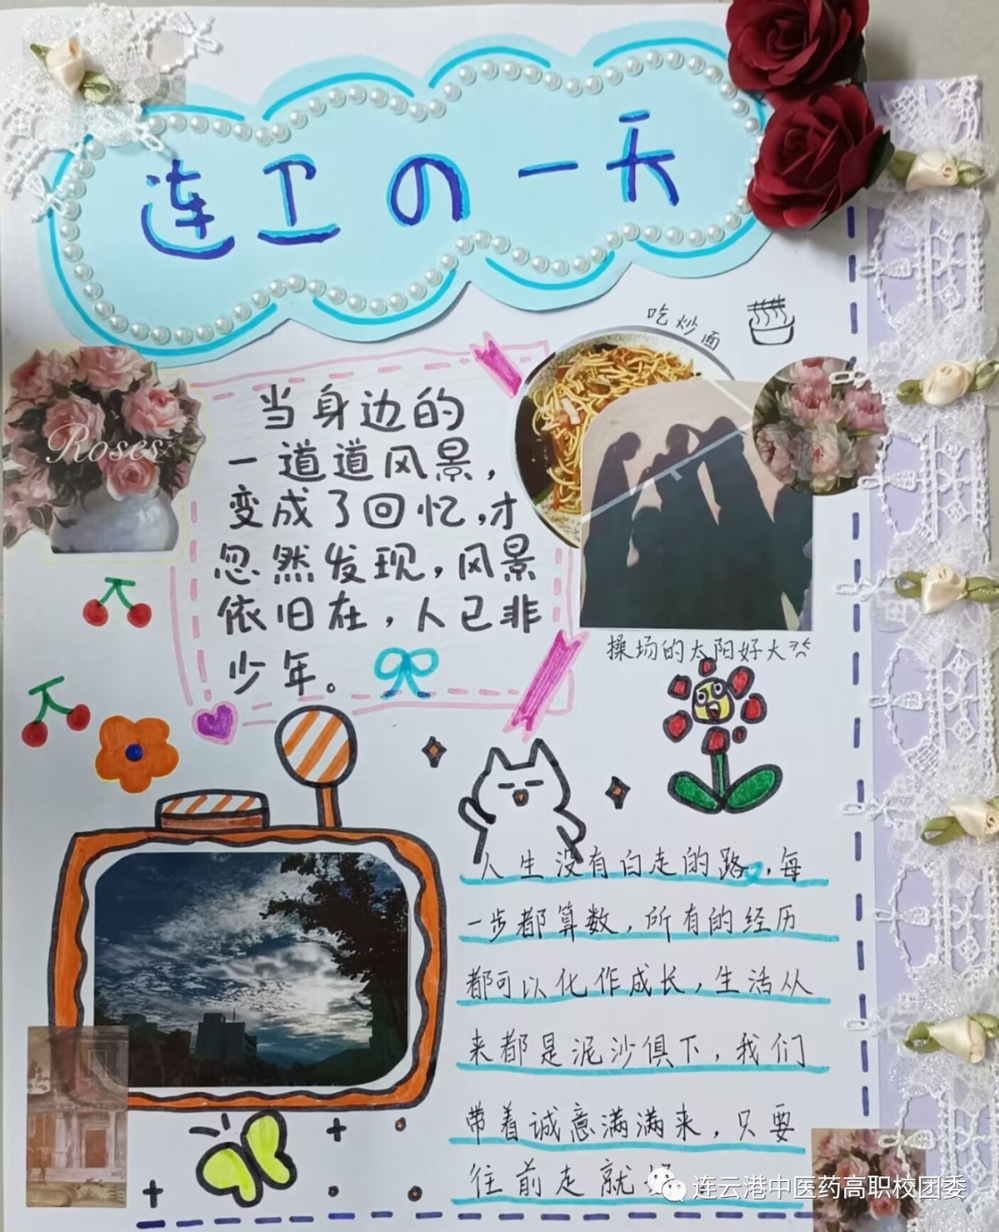 连卫の一天
吃炒面
Roses
当身边的
一道道风景，
变成了回忆，才
忽然发现，风景
依旧在，人已非
少年。
操场的太阳好大
人生没有白走的路，每
一步都算数，所有的经历
都可以化作成长，生活从
来都是泥沙俱下，我们
带着诚意满满来，只要
往前走就好
连云港中医药高职校团委